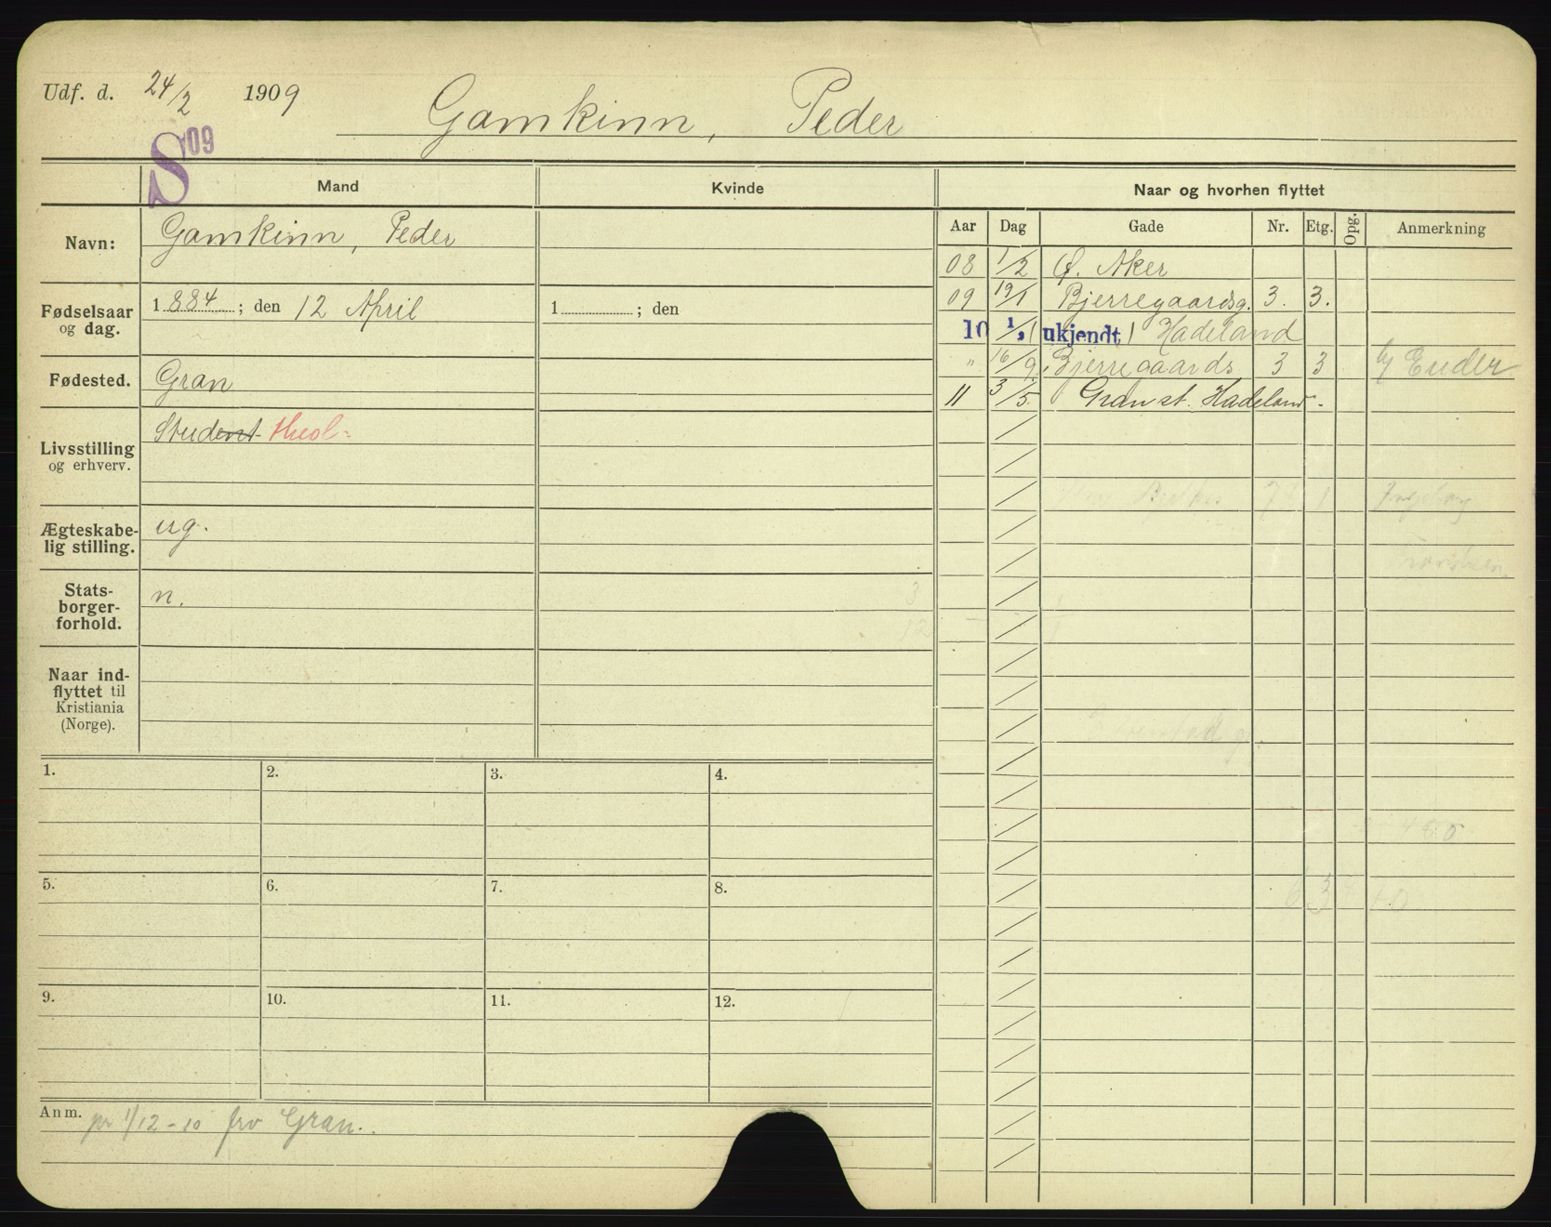 Udf. d. 24/2 1909
Gamkinn, Peder
S 09
Mand Kvinde Naar og hvorhen flyttet
Navn: Gamkinn, Peder
Aar Dag Gade Nr. Etg. Opg. Anmerkning
08 1/2 Ø. Aker
09 19/1 Bjerregaardsg. 3. 3.
10 1/1 ukjendt Hadeland
" 16/9 Bjerregaards 3 3 Euder
11 3/5 Gran st. Hadeland.
Fødselsaar og dag. 1884; den 12 April 1 ; den
Fødested. Gran
Livsstilling og erhverv. Student Theol:
Ægteskabe-
lig stilling. ug.
Stats-
borger-
forhold. n.
Naar ind-
flyttet til
Kristiania
(Norge).
1. 2. 3. 4.
5. 6. 7. 8.
9. 10. 11. 12.
Anm. 1/12 - 10 fra Gran.